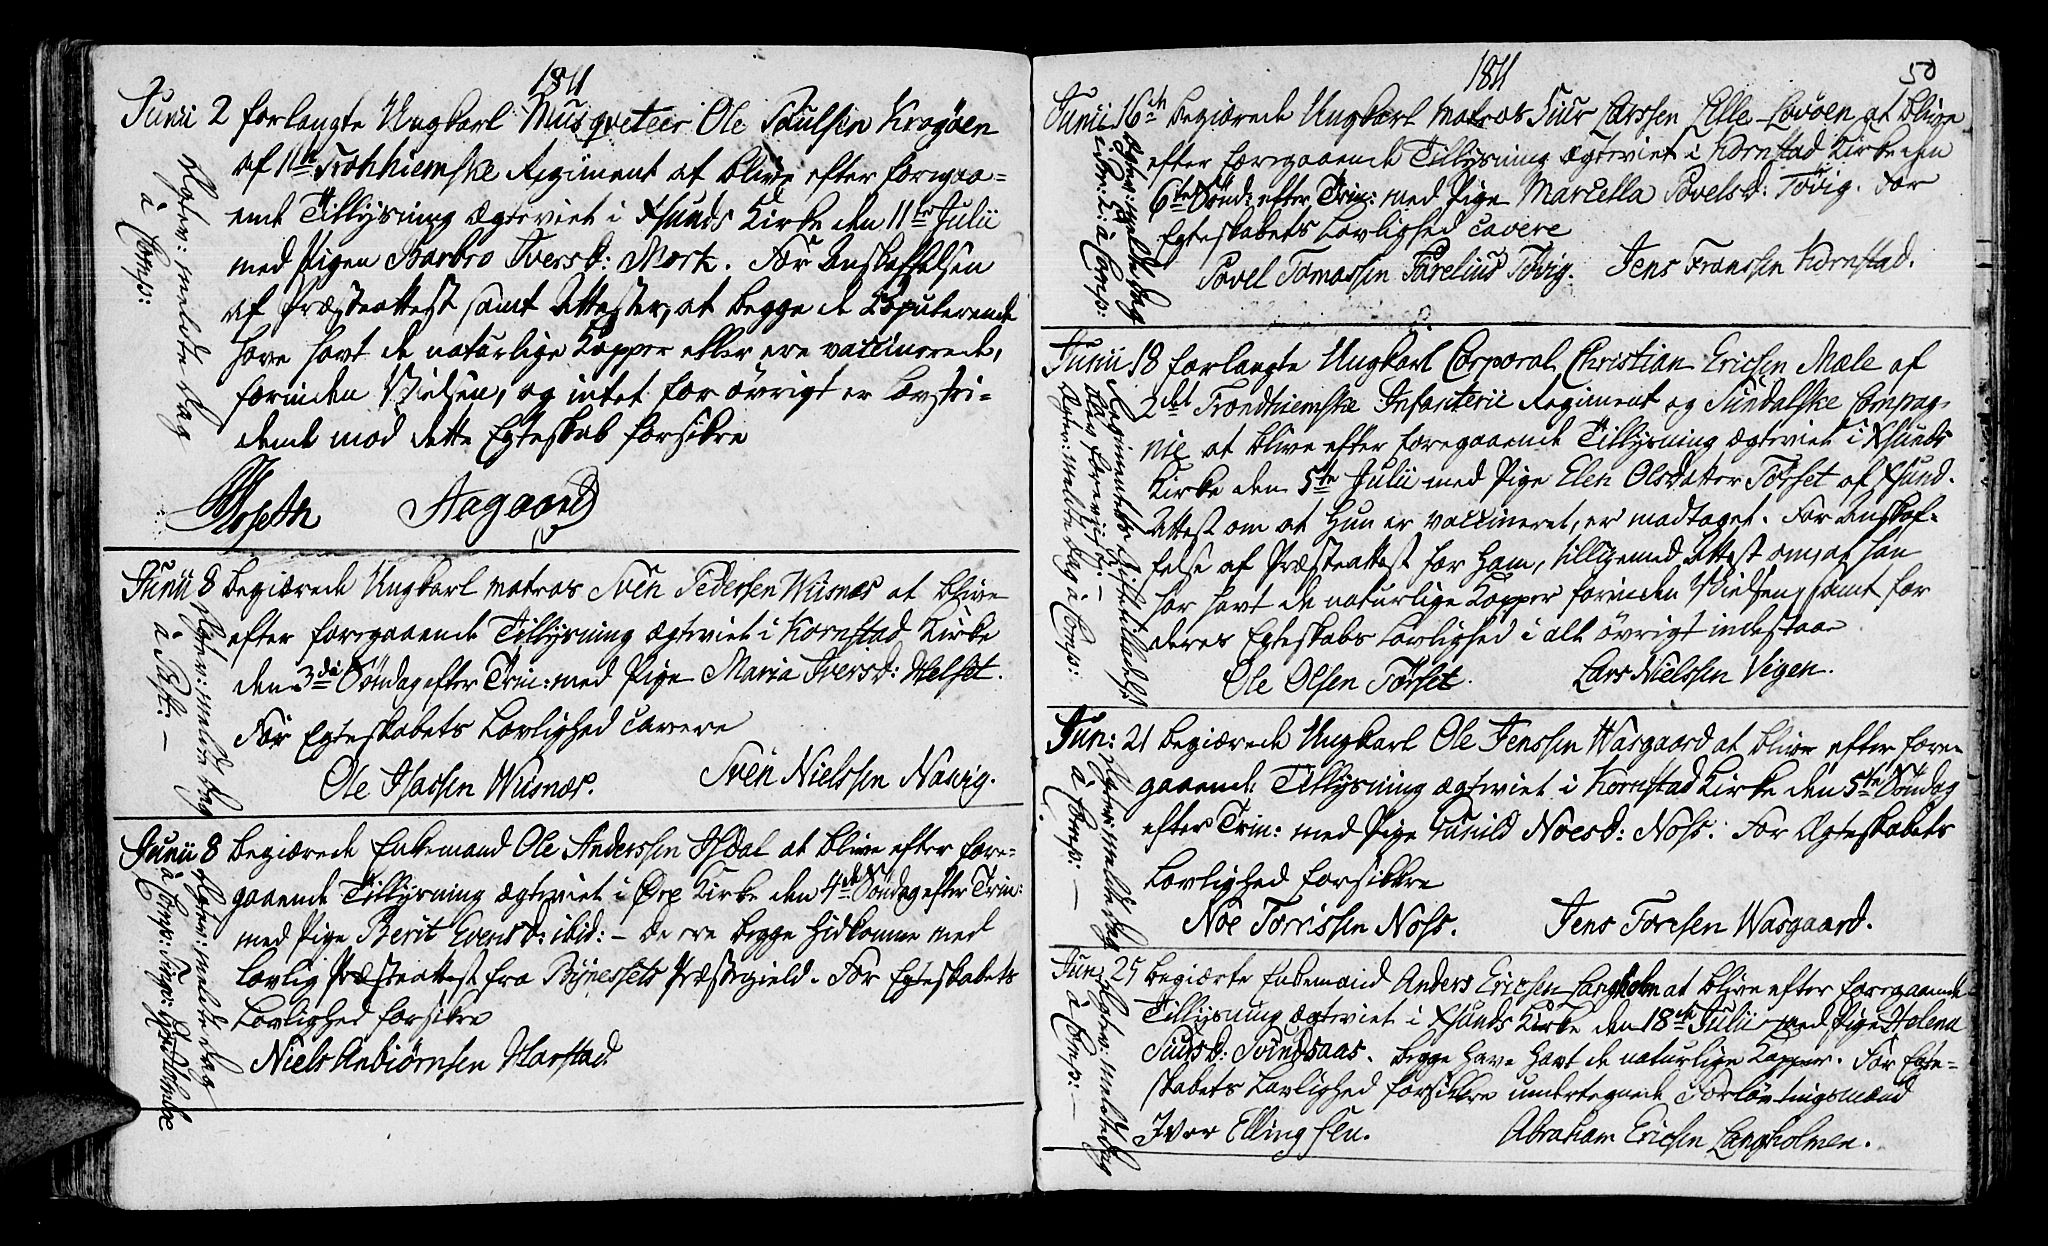 1811
Junii 2 forlangte Ungkarl Musqveteer Ole Paulsen Kragøen
af 11te Tronhiemske Regiment at blive efter foregaa-
ende Tillysning ægteviet i Xsunds Kirke den 11te Julii
med Pigen Barbro Iversd: Mork. For Anskaffelsen
af Præsteattest samt Attester, at begge de Copulerende
have havt de naturlige Kopper eller ere vaccinerede,
forinden Vielsen, og intet for øvrigt er lovstri-
dende mod dette Egteskab forsikre
Aagaard
meldte dag
à Conss:
Junii 8 begiærede Ungkarl matros Svén Pedersen Wiisnæs at blive
efter foregaaende Tillysning ægteviet i Kornstad Kirke
den 3die Søndag efter Trin: med Pige Maria Iversd: Melset.
For Egteskabets Lovlighed cavere
Ole Isacsen Wiisnæs. Svén Nielssen Nasvig.
meldte dag
Junii 8 begiærede Enkemand Ole Anderssen Isdal at blive efter fore-
gaaende Tillysning ægteviet i Øre Kirke den 4de Søndag efter Trin:
med Pige Berit Evensd: ibid: – de ere begge hidkomne med
lovlig Præsteattest fra Bynessets Præstegield. For Egteskabets
Lovlighed forsikre
Niels Anbiørnsen Harstad.
meldte dag
1811
50
Junii 16de begiærede Ungkarl Matros Siur Larssen Lille-Lovøen at blive
efter foregaaende Tillysning ægteviet i Kornstad Kirke den
6te Sønd: efter Trin: med Pige Marcella Povelsd: Tøvig. For
Egteskabets Lovlighed cavere
Povel Tomassen Parelius Tøvig. Jens Franssen Kornstad.
meldte dag
à Conss:
Junii 18 forlangte Ungkarl Corporal Christian Ericsen Mæle af
2det Trondhiemske Infanterie Regiment og Sundalske Compag-
nie at blive efter foregaaende Tillysning ægteviet i Xsunds
Kirke den 5te Julii med Pige Elen Olsdatter Tørset af Xsund.
Attest om at hun er vaccineret, er modtaget. For Anskaf-
felse af Præsteattest for ham, tilligemed Attest om, at han
har havt de naturlige Kopper forinden Vielsen, samt for
deres Egteskabs Lovlighed i alt øvrigt indestaae
Ole Olsen Tørset. Lars Nielssen Vegen.
meldte dag à Conss:
blev foreviist –
Jun: 21 begiærede Ungkarl Ole Jenssen Wasgaard at blive efter fore-
gaaende Tillysning ægteviet i Kornstad Kirke den 5te Søndag
efter Trin: med Pige Gunild Noesd: Noss. For Ægteskabets
Lovlighed forsikkre
Noe Torrissen Noss. Jens Toresen Wasgaard.
meldte dag
à Conss: –
Jun: 25 begiærte Enkemand Anders Ericsen Langholm at blive efter foregaaende
Tillysning ægteviet i Xsunds Kirke den 18de Julii med Pige Helena
Siursd: Svindsaas. begge have havt de naturlige Kopper. For Egte-
skabets Lovlighed forsikkre undertegnede Forlovningsmænd
Iver Ellingsen. Abraham Ericsen Langholmen.
meldte dag
à Conss: –